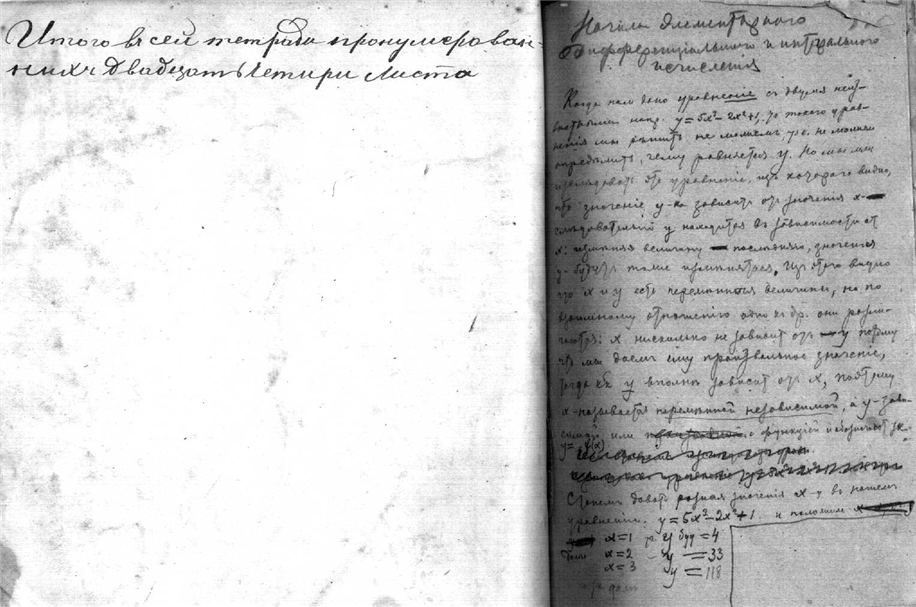 Итого въ сей тетради пронумерован-
ныхъ двадцать четыри листа
Начала элементарного
дифференціального и интегрального
исчисления
Когда нам дано уравненіе съ двумя неиз-
вестными напр. y=5x³-2x²+1, то такого урав-
ненія мы решить не можемъ, т.е. не можемъ
определить, чему равняется y. Но мы можемъ
это уравненіе, изъ котораго видно,
что значеніе y-ка зависитъ отъ значенія x-
следовательно y находится въ зависимости от
x: измѣняя величину постоянно, значенія
y-будутъ тоже измѣняться. Изъ этого видно
что x и y есть переменныя величины, но по
взаимному отношенію одно къ др. они разли-
чаются: x нисколько не зависит отъ y потому
что мы даемъ ему произвольное значеніе,
тогда как y вполнѣ зависит отъ x, поэтому
x-называется переменной независимой, а y-зави-
симой или функцией и обозначают
y=f(x)
Станемъ давать разныя значенія x-у въ нашемъ
уравненіи. y=5x³-2x²+1 и положимъ
x=1 y буд=4
x=2 y=33
x=3 y=118